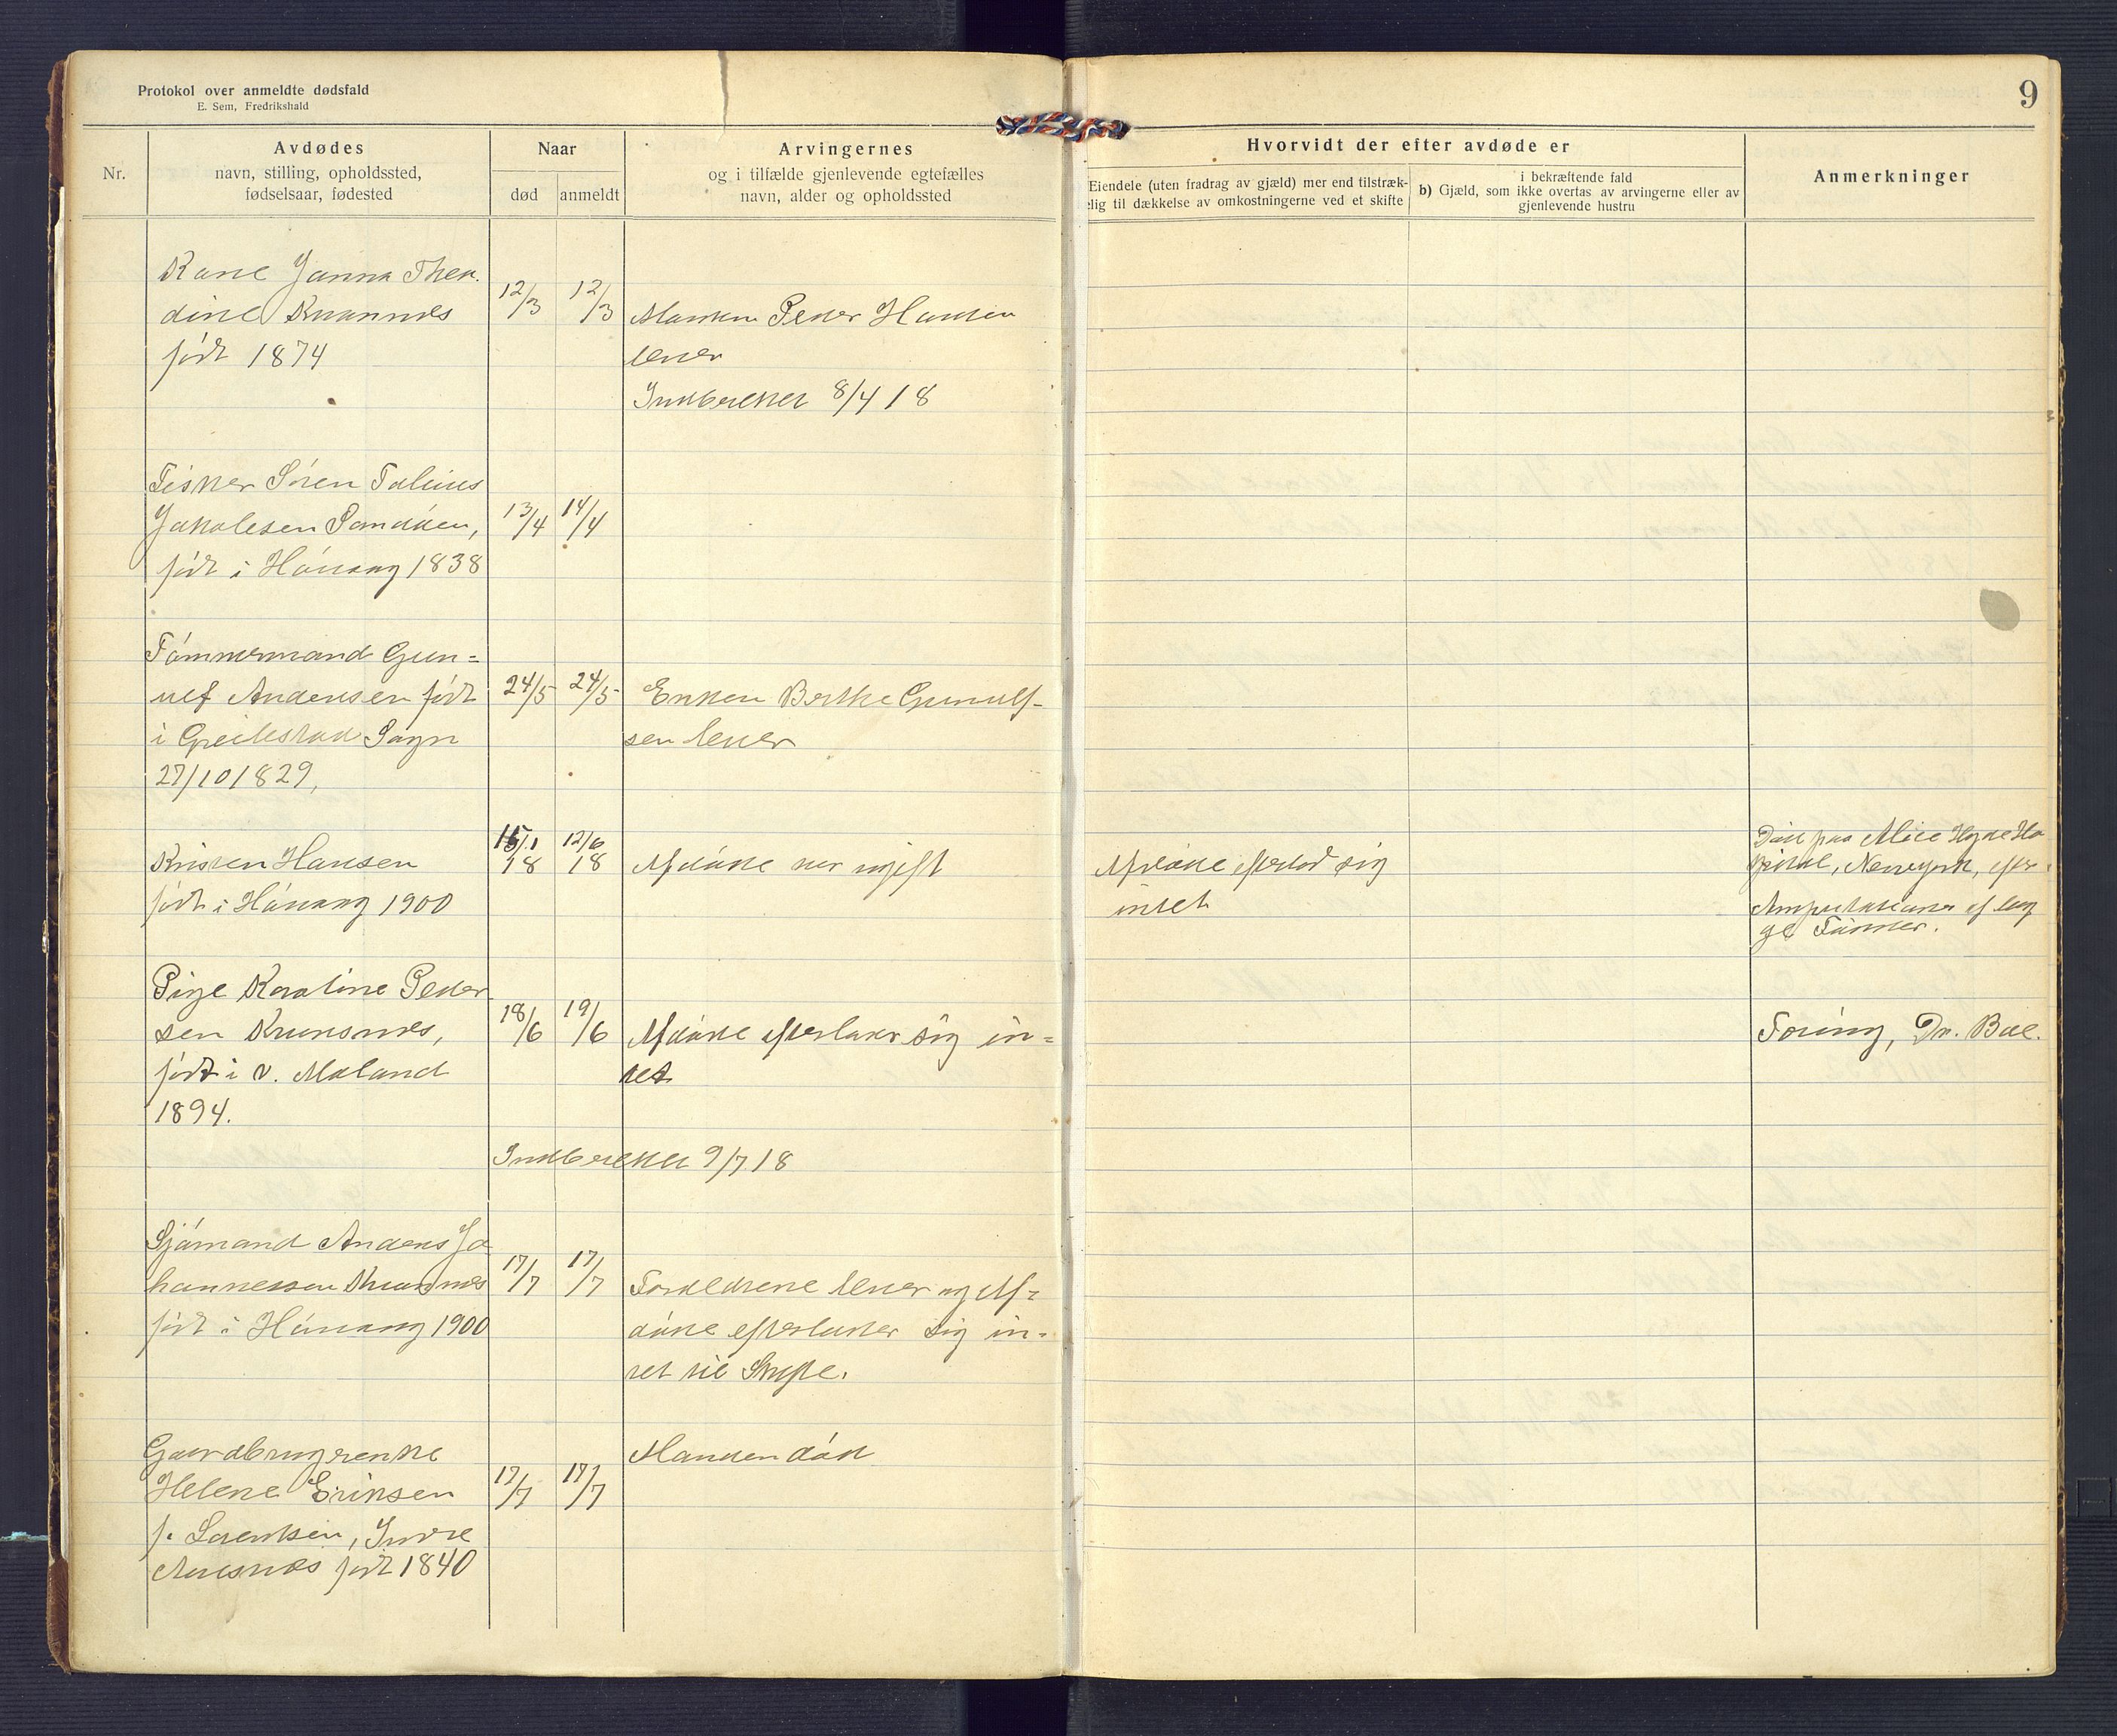 Protokol over anmeldte dødsfald
E. Sem, Fredrikshald
9
Nr.
Avdødes
navn, stilling, opholdssted,
fødselsaar, fødested
Naar
død
anmeldt
Arvingernes
og i tilfælde gjenlevende egtefælles
navn, alder og opholdssted
Hvorvidt der efter avdøde er
Eiendele (uten fradrag av gjæld) mer end tilstræk-
elig til dækkelse av omkostningerne ved et skifte
i bekræftende fald
b) Gjæld, som ikke overtas av arvingerne eller av
gjenlevende hustru
Anmerkninger
Kone Janna Thea
dine
født 1874
12/3
12/3
Manden Peder Hansen
lever
Indberettet 8/4 18
Fisker Sören Tobias
Jakobsen Sandöen,
född i Hövaag 1838
13/4
14/4
Tömmermand Gun=
ulf Andersen född
i Greilestad Sogn
27/10 1829,
24/5
24/5
Enken Berthe Gunulf-
sen lever
Kristen Hansen
född i Hövaag 1900
15/1
18
12/6
18
Afdöde var ugift
Afdöde efterlod sig
intet
Död paa Alice Hyde Ho
spital, Newyork, efter
Amputationen af
Pige Karoline Peder
sen
född i V. Moland
1894.
18/6
19/6
Afdöde efterlader sig in=
tet
Tæring, Dr. Boe.
Indberettet 9/7 18
Sjömand Anders Jo
hannessen
född i Hövaag 1900
17/7
17/7
Forældrene lever og Af=
döde efterlader sig in=
tet til Skifte.
Gaardbrugerenke
Helene Eriksen
f. Lorentsen, Indre
Aaresnæs född 1840
17/7
17/7
Manden död